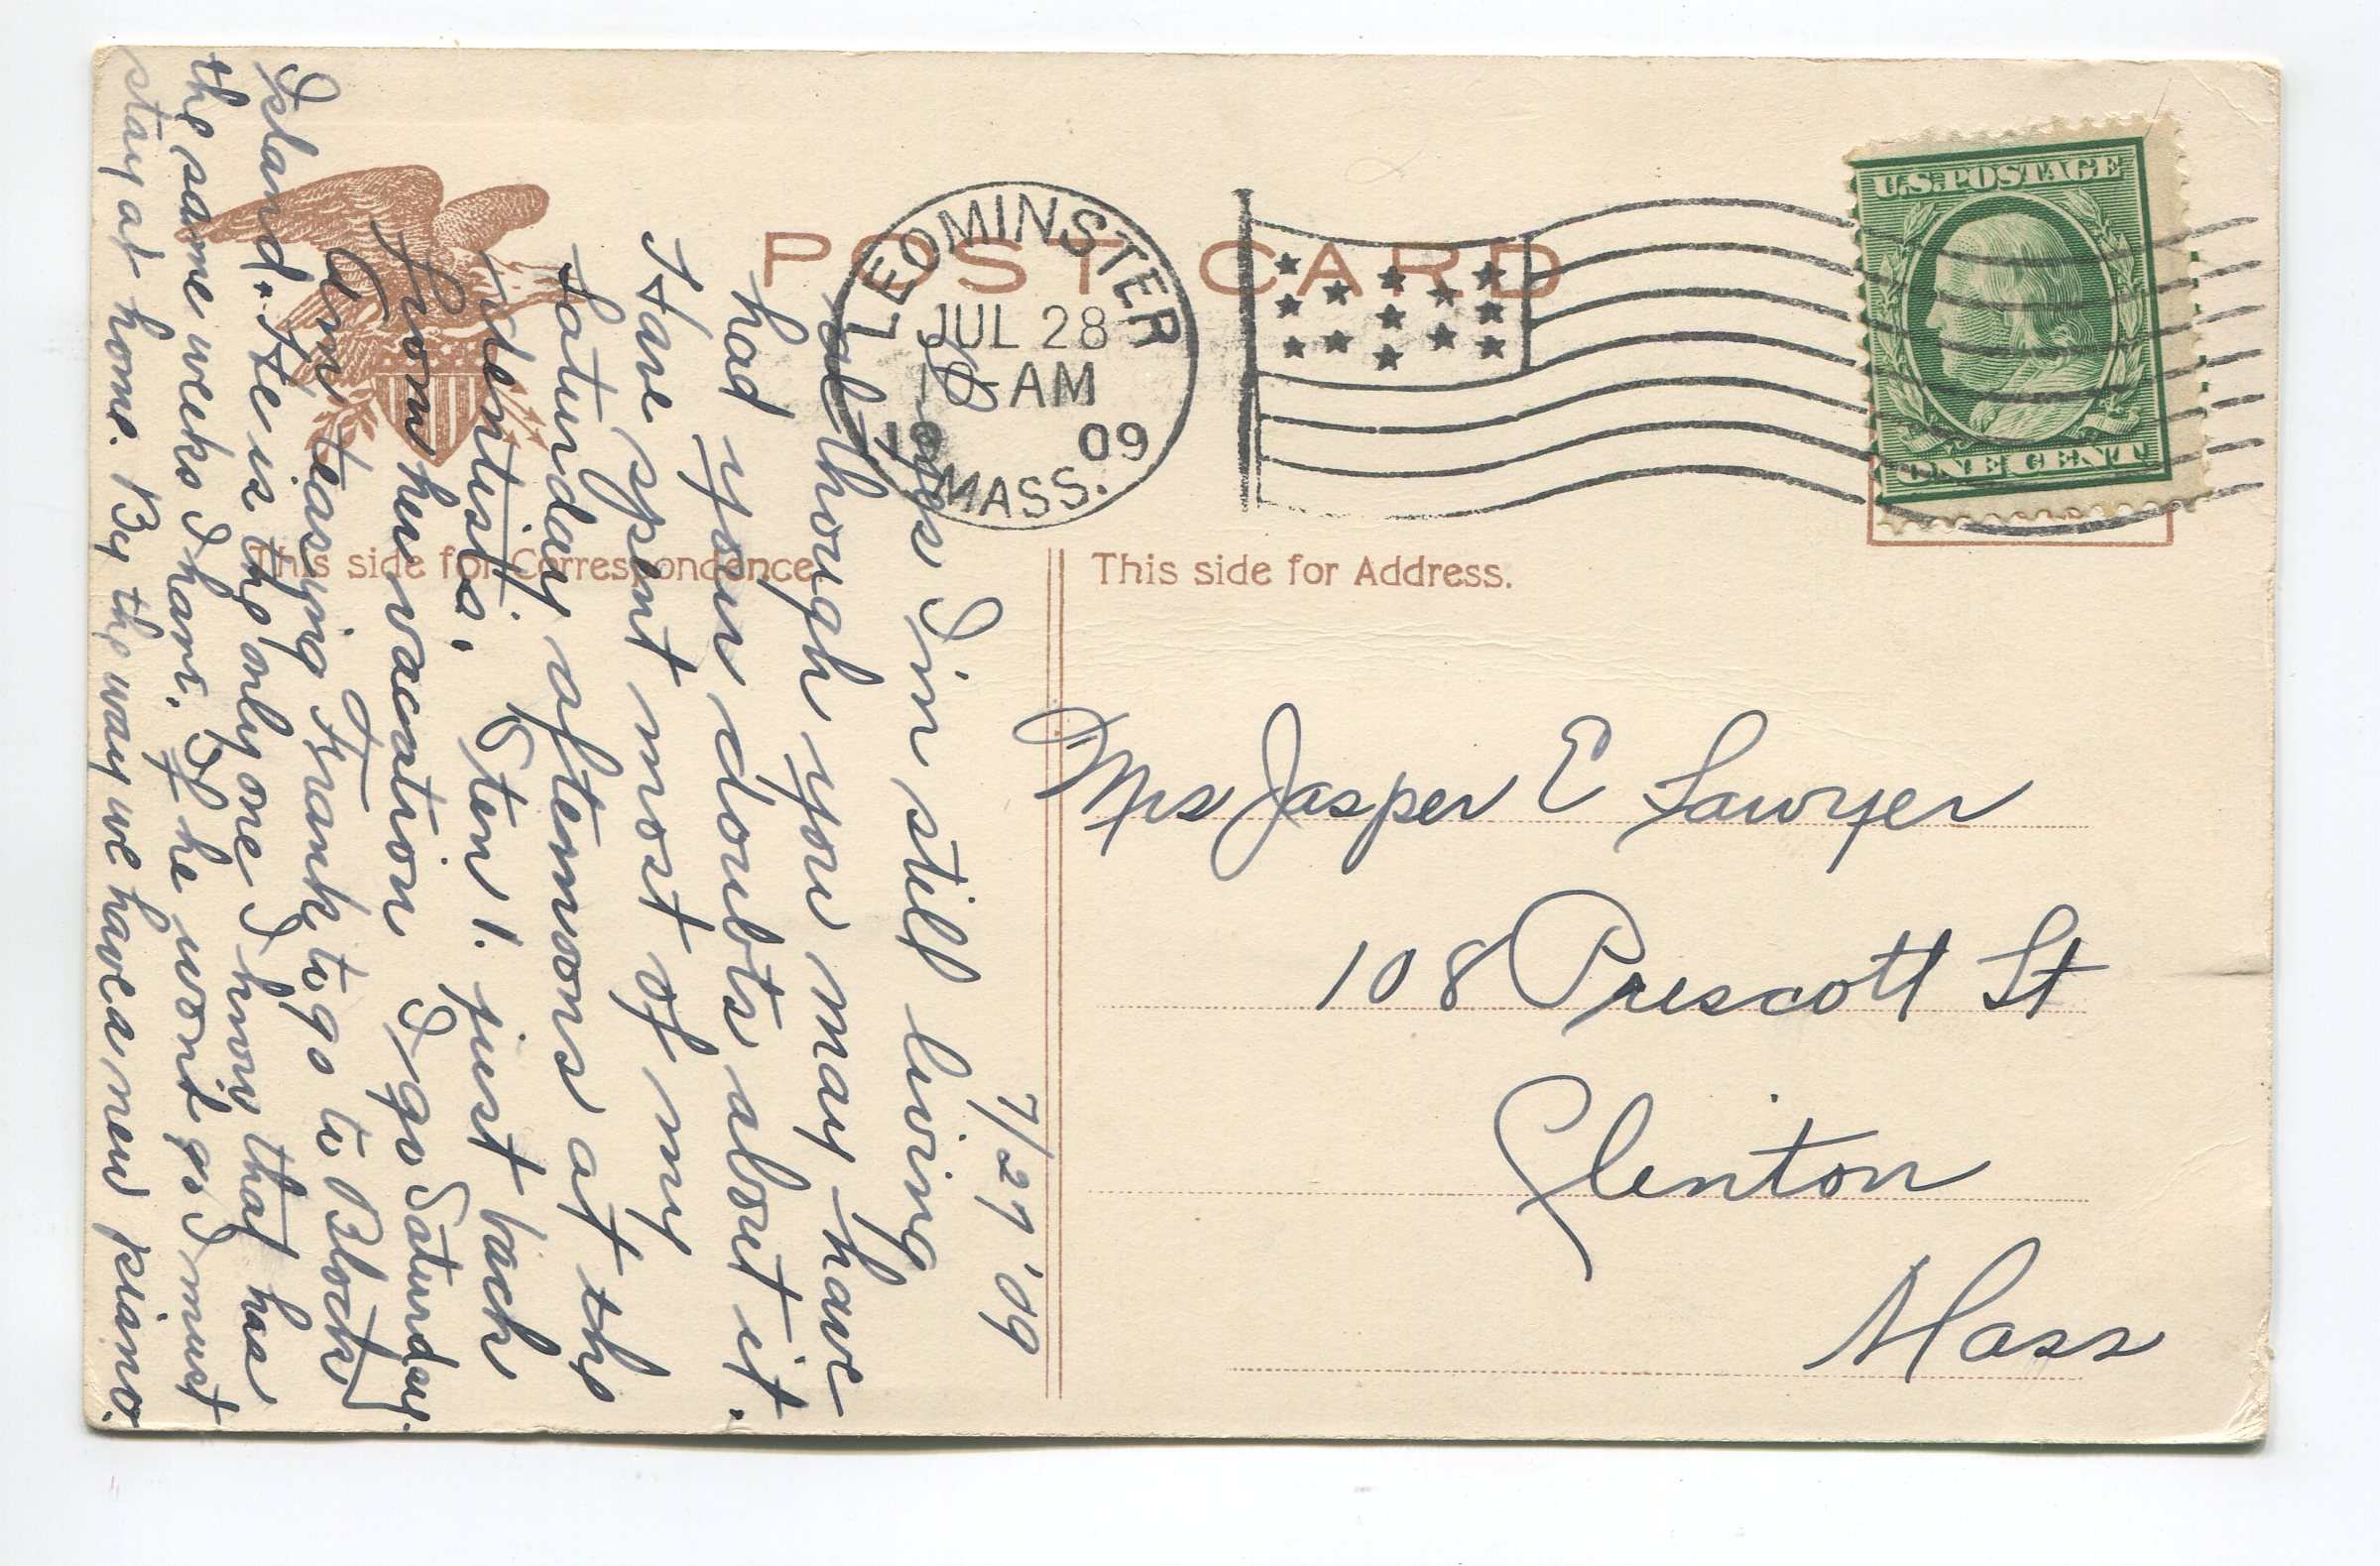 POST CARD
LEOMINSTER
JUL 28
AM
1909
MASS.
U.S. POSTAGE
ONE CENT
This side for Correspondence.
This side for Address.
Mrs Jasper E Sawyer
108 Prescott St
Clinton
Mass
7/27 '09
Yes I'm still living
although you may have
had your doubts about it.
Have spent most of my
Saturday afternoons at the
dentists. Sten 1. just back
from her vacation I go Saturday.
Am teasing Frank to go to Block
Island. He is the only one I know that has
the same weeks I have. If he wont go I must
stay at home. By the way we have a new piano.